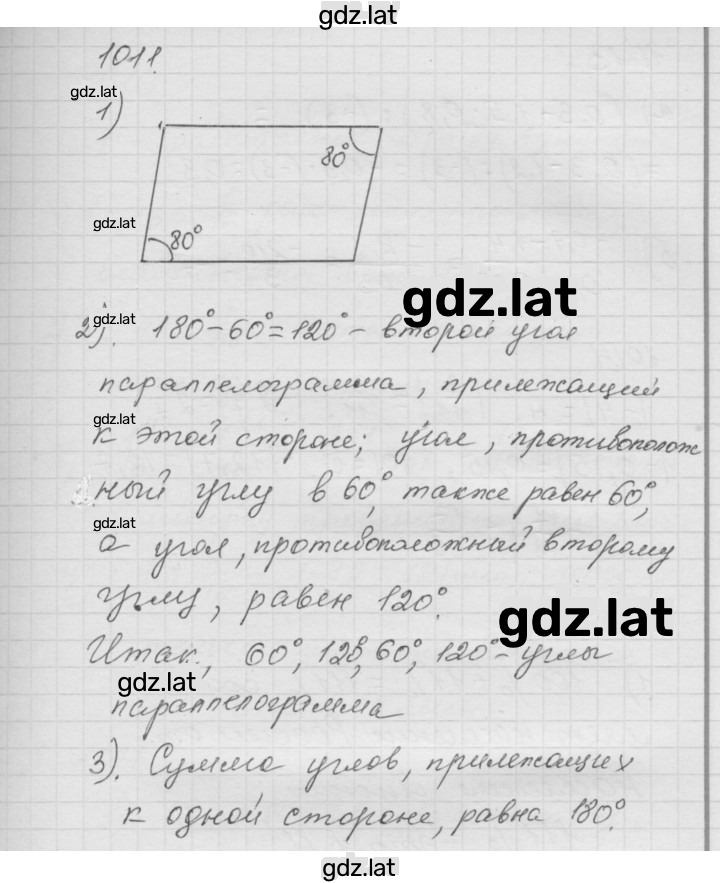 gdz.lat
1011.
gdz.lat
1)
80°
gdz.lat
80°
gdz.lat
gdz.lat
2). 180° - 60° = 120° - второй угол
параллелограмма, прилежащий
gdz.lat
к этой стороне; угол, противополож
ный углу в 60°, также равен 60°,
gdz.lat
а угол, противоположный второму
углу, равен 120°.
gdz.lat
Итак, 60°, 120°, 60°, 120° - углы
gdz.lat
параллелограмма
3). Сумма углов, прилежащих
к одной стороне, равна 180°.
gdz.lat